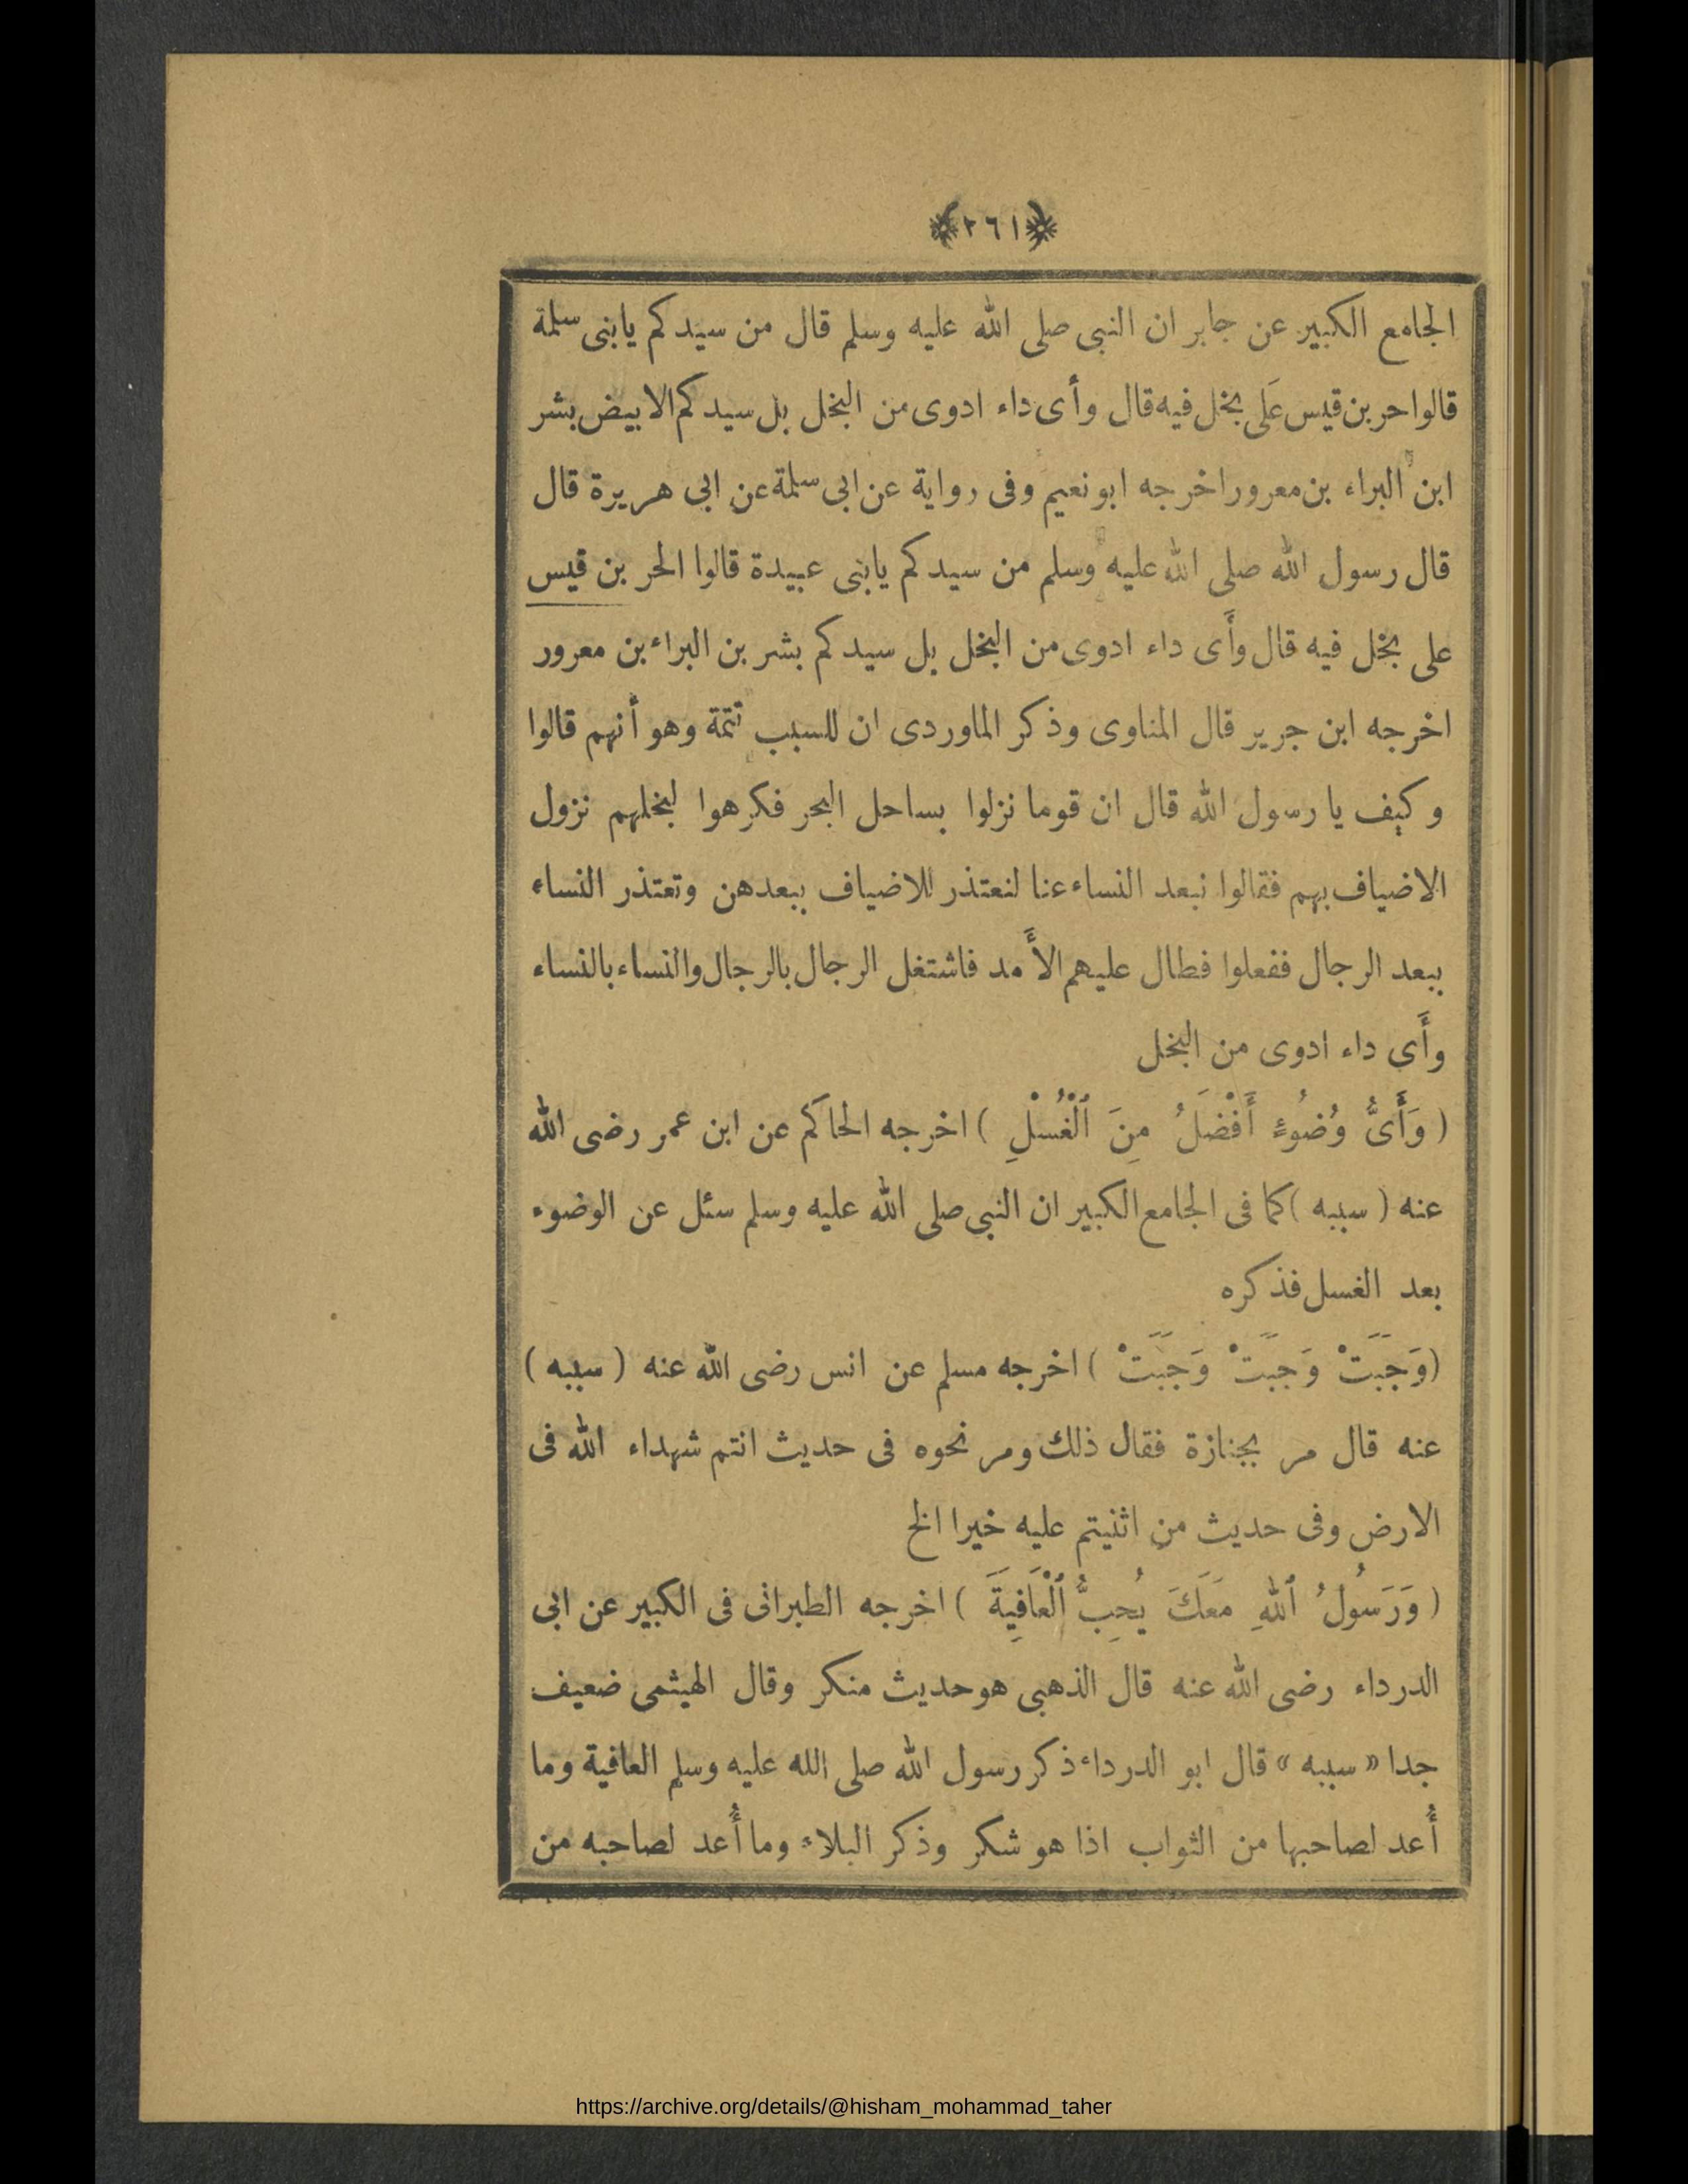 ﴿٢٦١﴾
الجامع الكبير عن جابر ان النبى صلى الله عليه وسلم قال من سيدكم يابنى سلمة
قالوا حر بن قيس عَلَى بخل فيه قال وأى داء ادوى من البخل بل سيدكم الابيض بشر
ابن البراء بن معرور اخرجه ابو نعيم وفى رواية عن ابى سلمة عن ابى هريرة قال
قال رسول الله صلى الله عليه وسلم من سيدكم يابنى عبيدة قالوا الحر بن قيس
على بخل فيه قال وأَى داء ادوى من البخل بل سيدكم بشر بن البراء بن معرور
اخرجه ابن جرير قال المناوى وذكر الماوردى ان للسبب تتمة وهو أنهم قالوا
وكيف يا رسول الله قال ان قوما نزلوا بساحل البحر فكرهوا لبخلهم نزول
الاضياف بهم فقالوا نبعد النساء عنا لنعتذر للاضياف ببعدهن وتعتذر النساء
ببعد الرجال ففعلوا فطال عليهم الأَمد فاشتغل الرجال بالرجال والنساء بالنساء
وأَى داء ادوى من البخل
( وَأَىُّ وُضُوءٍ أَفْضَلُ مِنَ ٱلْغُسْلِ ) اخرجه الحاكم عن ابن عمر رضى الله
عنه ( سببه ) كما فى الجامع الكبير ان النبى صلى الله عليه وسلم سئل عن الوضوء
بعد الغسل فذكره
(وَجَبَتْ وَجَبَتْ وَجَبَتْ ) اخرجه مسلم عن انس رضى الله عنه ( سببه )
عنه قال مر بجنازة فقال ذلك ومر نحوه فى حديث انتم شهداء الله فى
الارض وفى حديث من اثنيتم عليه خيرا الخ
( وَرَسُولُ ٱللهِ مَعَكَ يُحِبُّ ٱلْعَافِيَةَ ) اخرجه الطبرانى فى الكبير عن ابى
الدرداء رضى الله عنه قال الذهبى هو حديث منكر وقال الهيثمى ضعيف
جدا « سببه » قال ابو الدرداء ذكر رسول الله صلى الله عليه وسلم العافية وما
أُعد لصاحبها من الثواب اذا هو شكر وذكر البلاء وما أُعد لصاحبه من
https://archive.org/details/@hisham_mohammad_taher